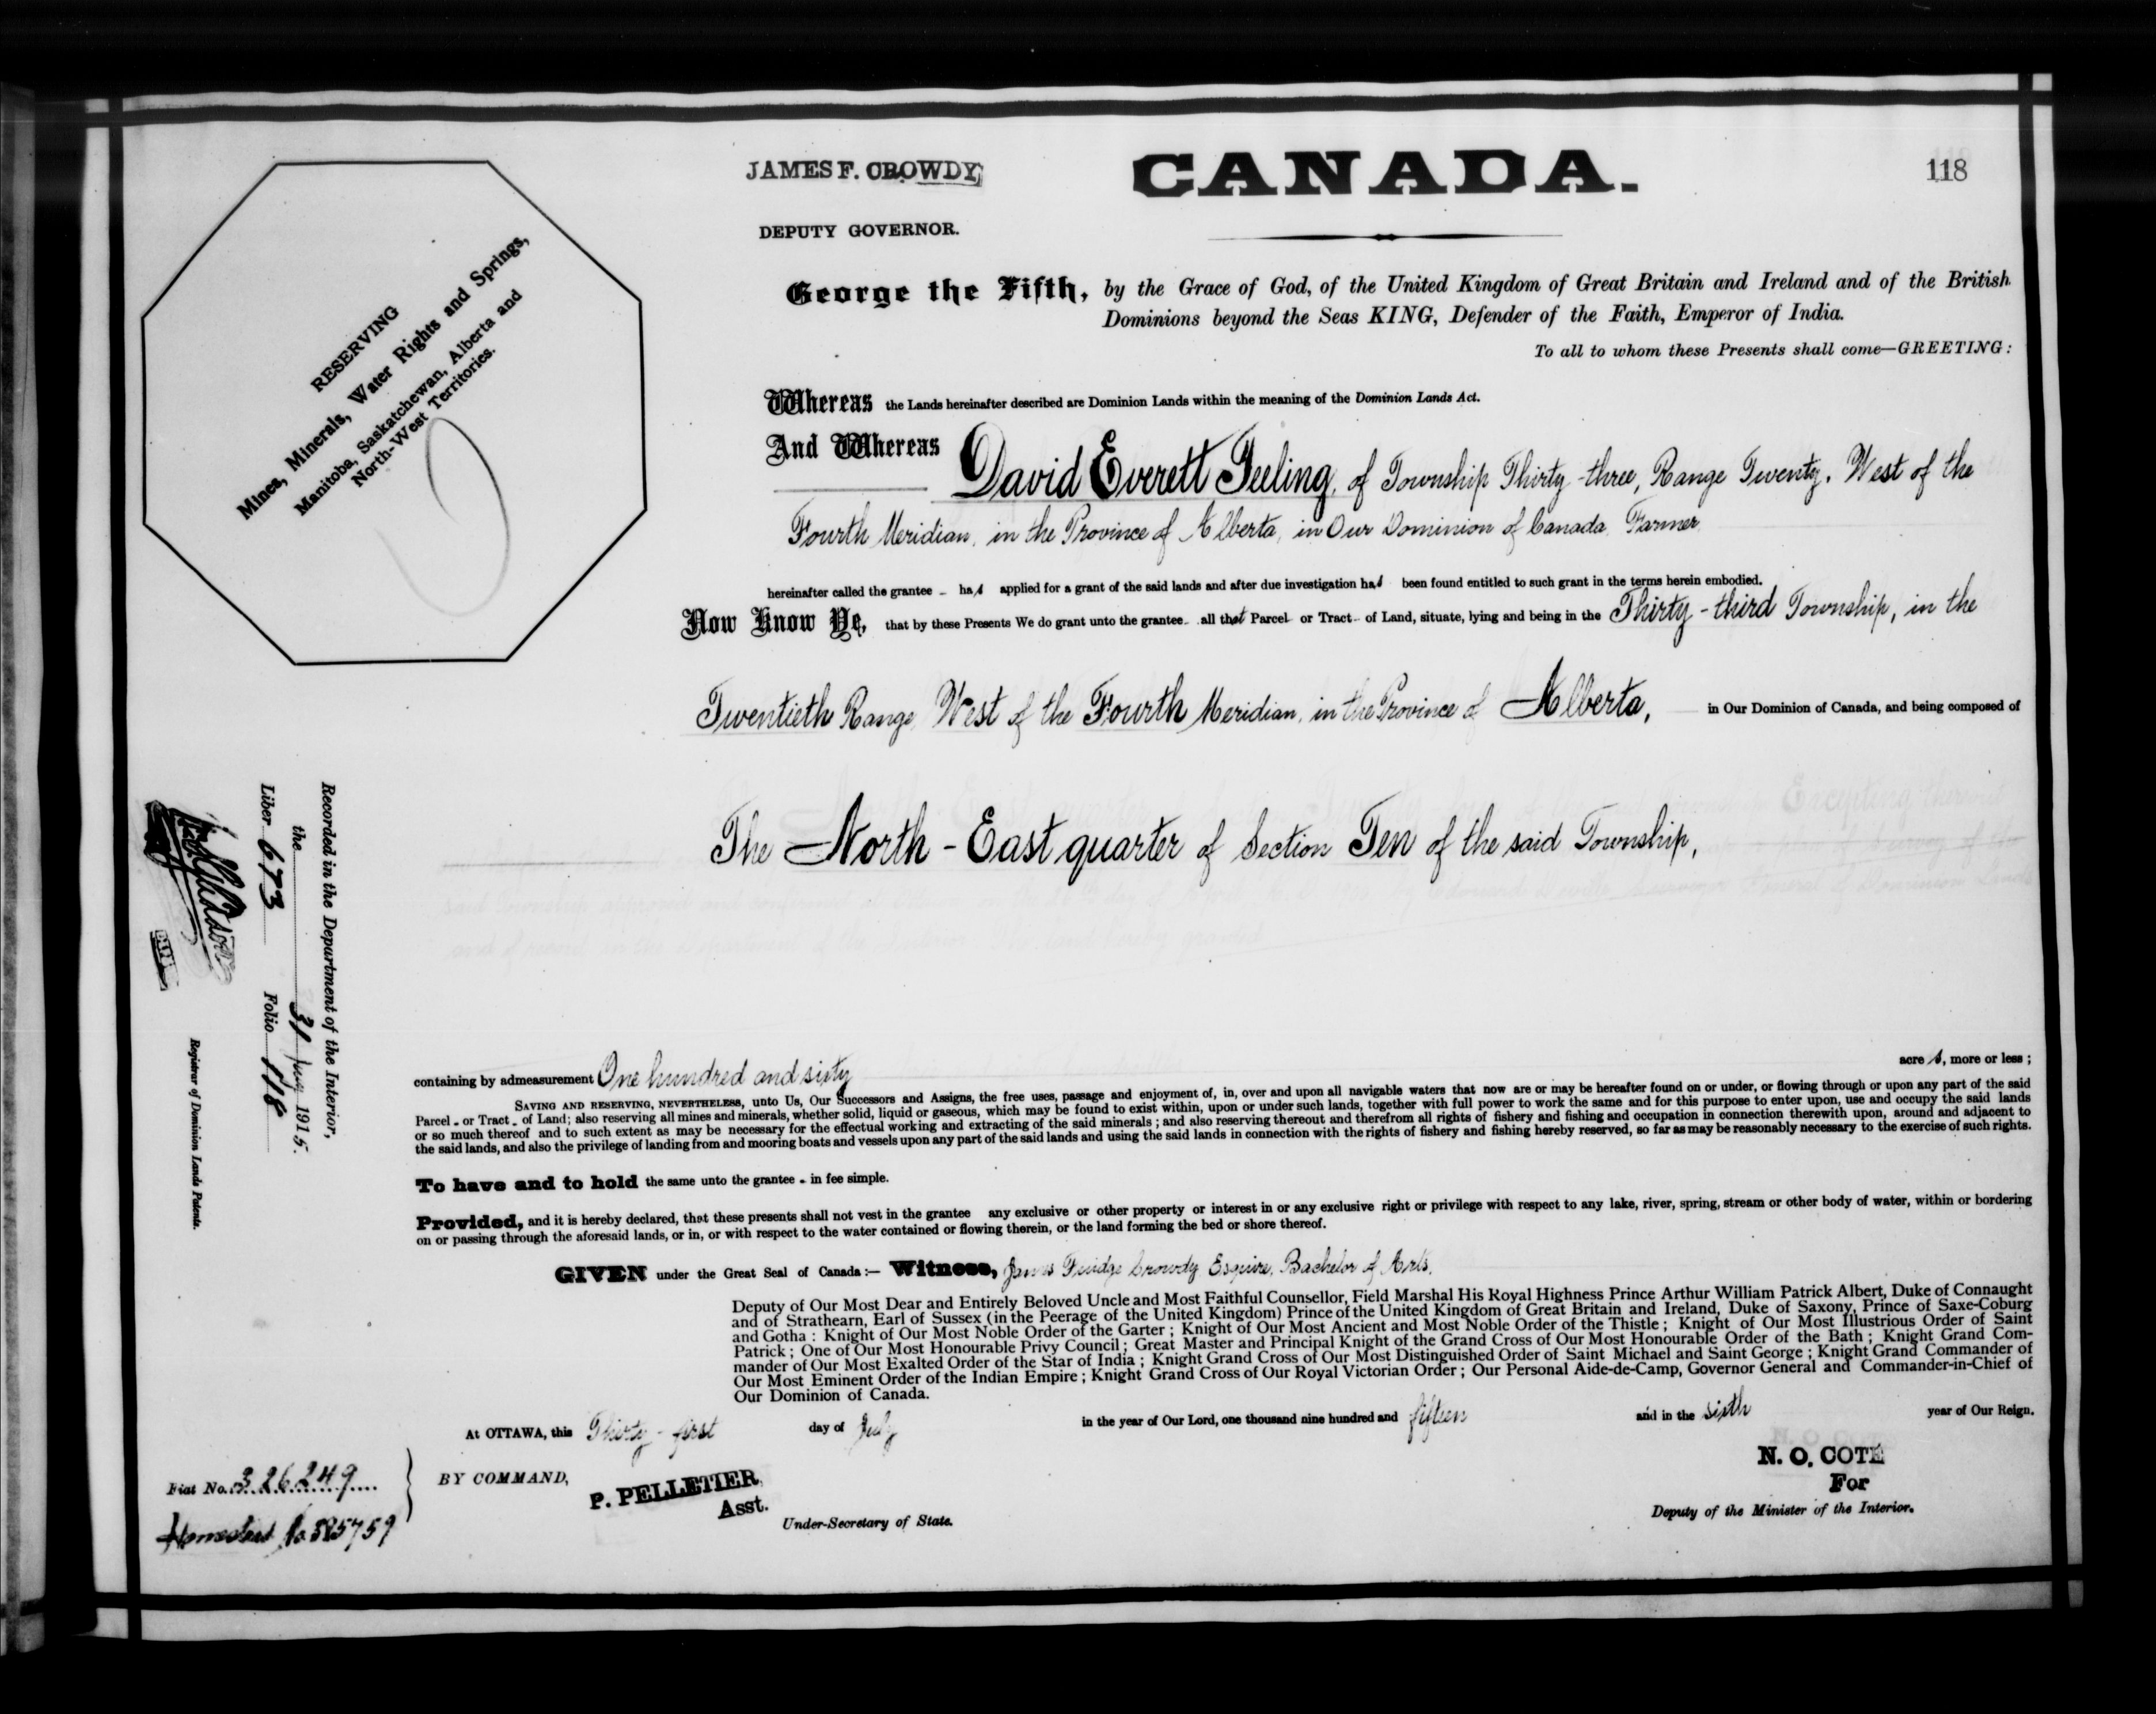 118
JAMES F. CROWDY,
CANADA.
DEPUTY GOVERNOR.
RESERVING
Mines, Minerals, Water Rights and Springs,
Manitoba, Saskatchewan, Alberta and
North-West Territories.
George the Fifth, by the Grace of God, of the United Kingdom of Great Britain and Ireland and of the British
Dominions beyond the Seas KING, Defender of the Faith, Emperor of India.
To all to whom these Presents shall come—GREETING:
Whereas the Lands hereinafter described are Dominion Lands within the meaning of the Dominion Lands Act.
And Whereas David Everett Feeling, of Township Thirty-three, Range Twenty, West of the
Fourth Meridian, in the Province of Alberta, in Our Dominion of Canada, Farmer
hereinafter called the grantee - has applied for a grant of the said lands and after due investigation has been found entitled to such grant in the terms herein embodied.
Now Know Ye, that by these Presents We do grant unto the grantee - all that Parcel - or Tract - of Land, situate, lying and being in the Thirty-third Township, in the
Twentieth Range West of the Fourth Meridian, in the Province of Alberta, in Our Dominion of Canada, and being composed of
The North-East quarter of Section Ten of the said Township,
containing by admeasurement One hundred and sixty acres, more or less;
SAVING AND RESERVING, NEVERTHELESS, unto Us, Our Successors and Assigns, the free uses, passage and enjoyment of, in, over and upon all navigable waters that now are or may be hereafter found on or under, or flowing through or upon any part of the said
Parcel - or Tract - of Land; also reserving all mines and minerals, whether solid, liquid or gaseous, which may be found to exist within, upon or under such lands, together with full power to work the same and for this purpose to enter upon, use and occupy the said lands
or so much thereof and to such extent as may be necessary for the effectual working and extracting of the said minerals; and also reserving thereout and therefrom all rights of fishery and fishing and occupation in connection therewith upon, around and adjacent to
the said lands, and also the privilege of landing from and mooring boats and vessels upon any part of the said lands and using the said lands in connection with the rights of fishery and fishing hereby reserved, so far as may be reasonably necessary to the exercise of such rights.
To have and to hold the same unto the grantee - in fee simple.
Provided, and it is hereby declared, that these presents shall not vest in the grantee any exclusive or other property or interest in or any exclusive right or privilege with respect to any lake, river, spring, stream or other body of water, within or bordering
on or passing through the aforesaid lands, or in, or with respect to the water contained or flowing therein, or the land forming the bed or shore thereof.
GIVEN under the Great Seal of Canada:— Witness, James Fuidge Crowdy Esquire, Bachelor of Arts,
Deputy of Our Most Dear and Entirely Beloved Uncle and Most Faithful Counsellor, Field Marshal His Royal Highness Prince Arthur William Patrick Albert, Duke of Connaught
and of Strathearn, Earl of Sussex (in the Peerage of the United Kingdom) Prince of the United Kingdom of Great Britain and Ireland, Duke of Saxony, Prince of Saxe-Coburg
and Gotha: Knight of Our Most Noble Order of the Garter; Knight of Our Most Ancient and Most Noble Order of the Thistle; Knight of Our Most Illustrious Order of Saint
Patrick; One of Our Most Honourable Privy Council; Great Master and Principal Knight of the Grand Cross of Our Most Honourable Order of the Bath; Knight Grand Com-
mander of Our Most Exalted Order of the Star of India; Knight Grand Cross of Our Most Distinguished Order of Saint Michael and Saint George; Knight Grand Commander of
Our Most Eminent Order of the Indian Empire; Knight Grand Cross of Our Royal Victorian Order; Our Personal Aide-de-Camp, Governor General and Commander-in-Chief of
Our Dominion of Canada.
At OTTAWA, this Thirty-first day of July in the year of Our Lord, one thousand nine hundred and fifteen and in the sixth year of Our Reign.
BY COMMAND,
P. PELLETIER,
Asst.
Under-Secretary of State.
N. O. COTÉ
For
Deputy of the Minister of the Interior.
Fiat No. 326249
Homestead No 385759
Recorded in the Department of the Interior,
the 31 1915.
Liber 673 Folio 118
Registrar of Dominion Lands Patents.